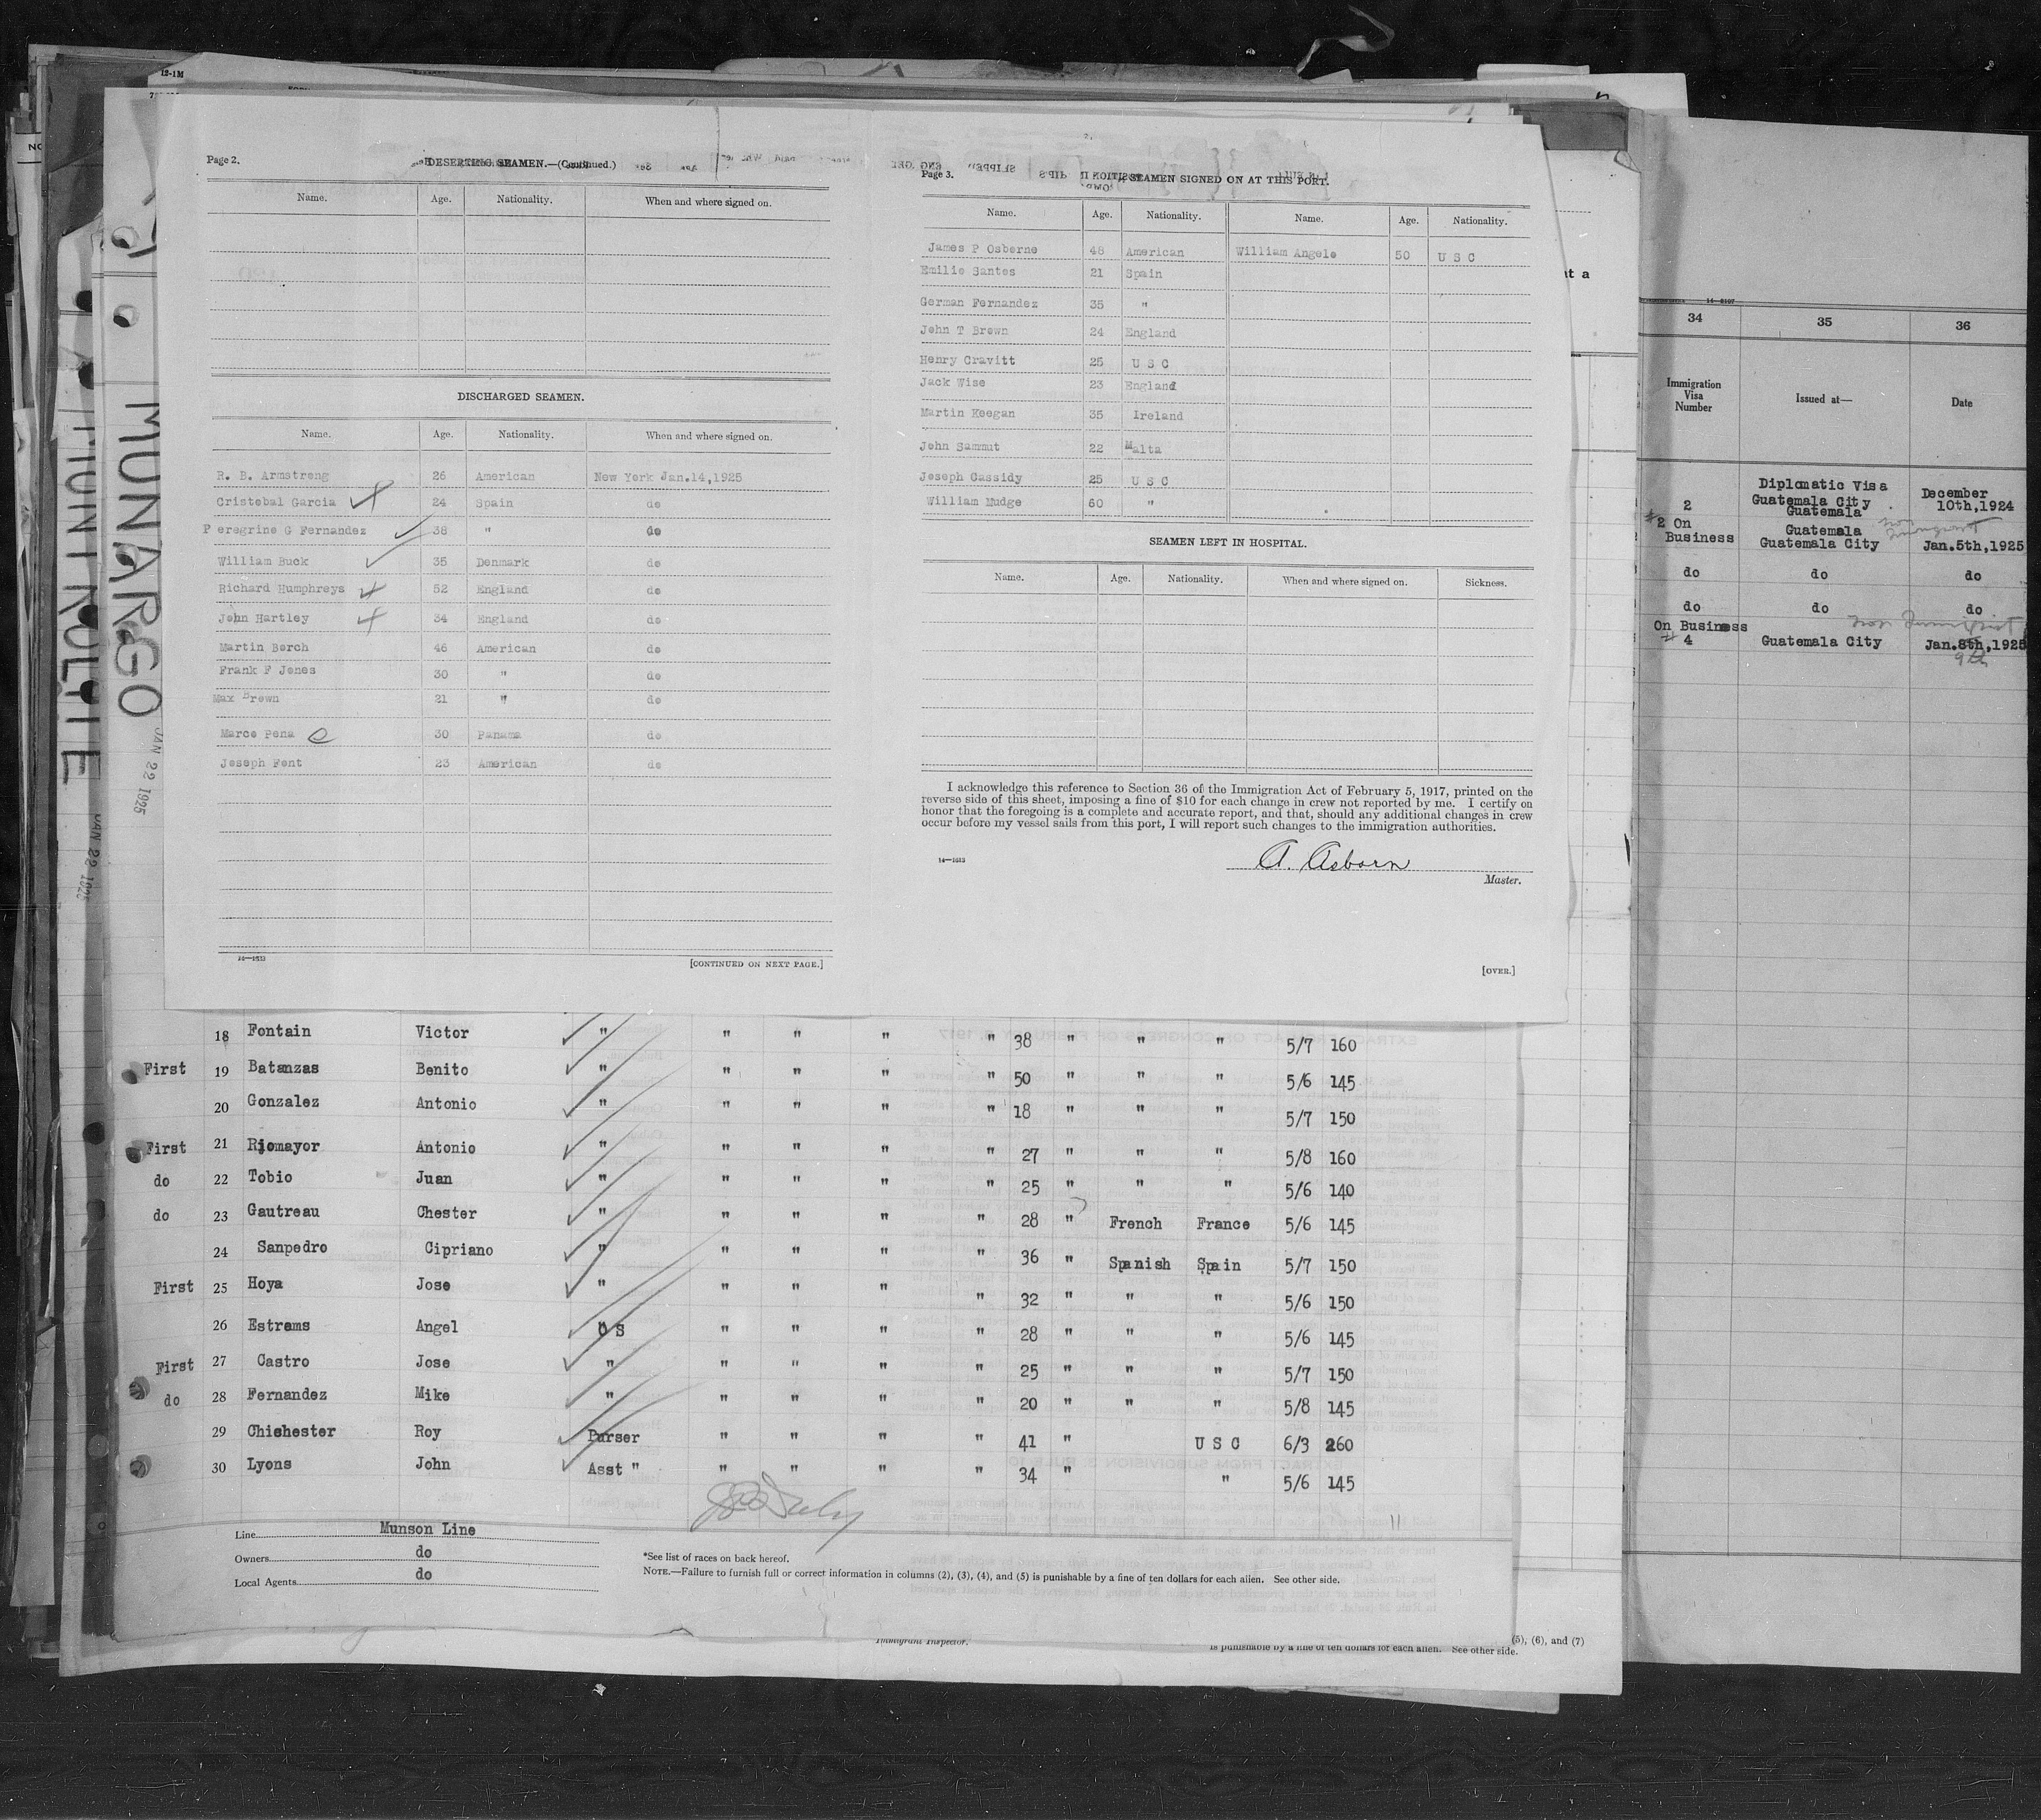 12-1M
Page 2.
DESERTING SEAMEN.—(Continued.)
Name. Age. Nationality. When and where signed on.
DISCHARGED SEAMEN.
Name. Age. Nationality. When and where signed on.
R. B. Armstrong 26 American New York Jan.14,1925
Cristobal Garcia 24 Spain do
Peregrino G Fernandez 38 " do
William Buck 35 Denmark do
Richard Humphreys 52 England do
John Hartley 34 England do
Martin Borch 46 American do
Frank F Jones 30 " do
Max Brown 21 " do
Marco Pena 30 Panama do
Joseph Font 23 American do
14—1613
[CONTINUED ON NEXT PAGE.]
2.
Page 3.
SEAMEN SIGNED ON AT THIS PORT.
Name. Age. Nationality. Name. Age. Nationality.
James P Osborne 48 American William Angelo 50 U S C
Emilio Santos 21 Spain
German Fernandez 35 "
John T Brown 24 England
Henry Cravitt 25 U S C
Jack Wise 23 England
Martin Keegan 35 Ireland
John Sammut 22 Malta
Joseph Cassidy 25 U S C
William Mudge 60 "
SEAMEN LEFT IN HOSPITAL.
Name. Age. Nationality. When and where signed on. Sickness.
I acknowledge this reference to Section 36 of the Immigration Act of February 5, 1917, printed on the
reverse side of this sheet, imposing a fine of $10 for each change in crew not reported by me. I certify on
honor that the foregoing is a complete and accurate report, and that, should any additional changes in crew
occur before my vessel sails from this port, I will report such changes to the immigration authorities.
14—1613
A. Asborn
Master.
[OVER.]
MUNARGO
JAN 22 1925
JAN 22 1925
at a
34 35 36
Immigration
Visa
Number
Issued at—
Date
2 Diplomatic Visa
Guatemala City
Guatemala
December
10th,1924
#2 On
Business
Guatemala
Guatemala City
Non
Immigrant
Jan.5th,1925
do do do
do do do
On Business
# 4
Guatemala City
Non Immigrant
Jan.8th,1925
9th
18 Fontain Victor " " " " " 38 " " " 5/7 160
First 19 Batanzas Benito " " " " " 50 " " " 5/6 145
20 Gonzalez Antonio " " " " " 18 " " " 5/7 150
First 21 Riomayor Antonio " " " " " 27 " " " 5/8 160
do 22 Tobio Juan " " " " " 25 " " " 5/6 140
do 23 Gautreau Chester " " " " " 28 " French France 5/6 145
24 Sanpedro Cipriano " " " " " 36 " Spanish Spain 5/7 150
First 25 Hoya Jose " " " " " 32 " " " 5/6 150
26 Estrams Angel O S " " " " 28 " " " 5/6 145
First 27 Castro Jose " " " " " 25 " " " 5/7 150
do 28 Fernandez Mike " " " " " 20 " " " 5/8 145
29 Chichester Roy Purser " " " " 41 " U S C 6/3 260
30 Lyons John Asst " " " " " 34 " " 5/6 145
11
Line Munson Line
Owners do
Local Agents do
*See list of races on back hereof.
NOTE.—Failure to furnish full or correct information in columns (2), (3), (4), and (5) is punishable by a fine of ten dollars for each alien. See other side.
Immigrant Inspector.
(5), (6), and (7)
is punishable by a fine of ten dollars for each alien. See other side.